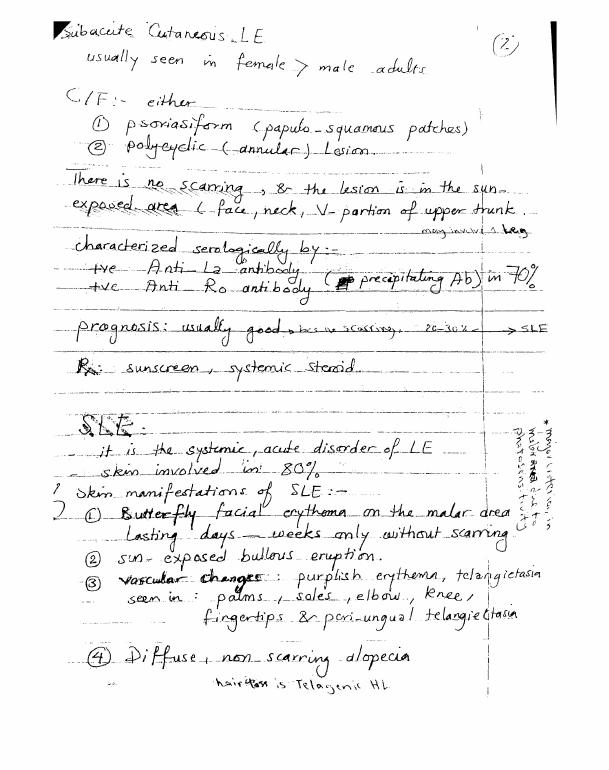 Subacute Cutaneous LE
(2)
usually seen in female > male adults
C/F:- either
① psoriasiform (papulo-squamous patches)
② polycyclic (annular) Lesion.
There is no scarring, & the lesion is in the sun-
exposed area (face, neck, V-partion of upper trunk.
may involve Leg
characterized serologically by:-
+ve Anti La antibody
+ve Anti Ro antibody (precipitating Ab) in 70%
prognosis: usually good, no scarring. 20-30% → SLE
Rx: sunscreen, systemic steroid
SLE:
- it is the systemic, acute disorder of LE
- skin involved in 80%
Skin manifestations of SLE:-
① Butterfly facial erythema on the malar area
Lasting days - weeks only without scarring
② sun-exposed bullous eruption.
③ vascular changes: purplish erythema, telangietasia
seen in: palms, soles, elbow, knee,
fingertips & peri-ungual telangiectasia
④ Diffuse, non scarring alopecia
hair loss is Telagenic HL
* major criterion in
due to
photosensitivity